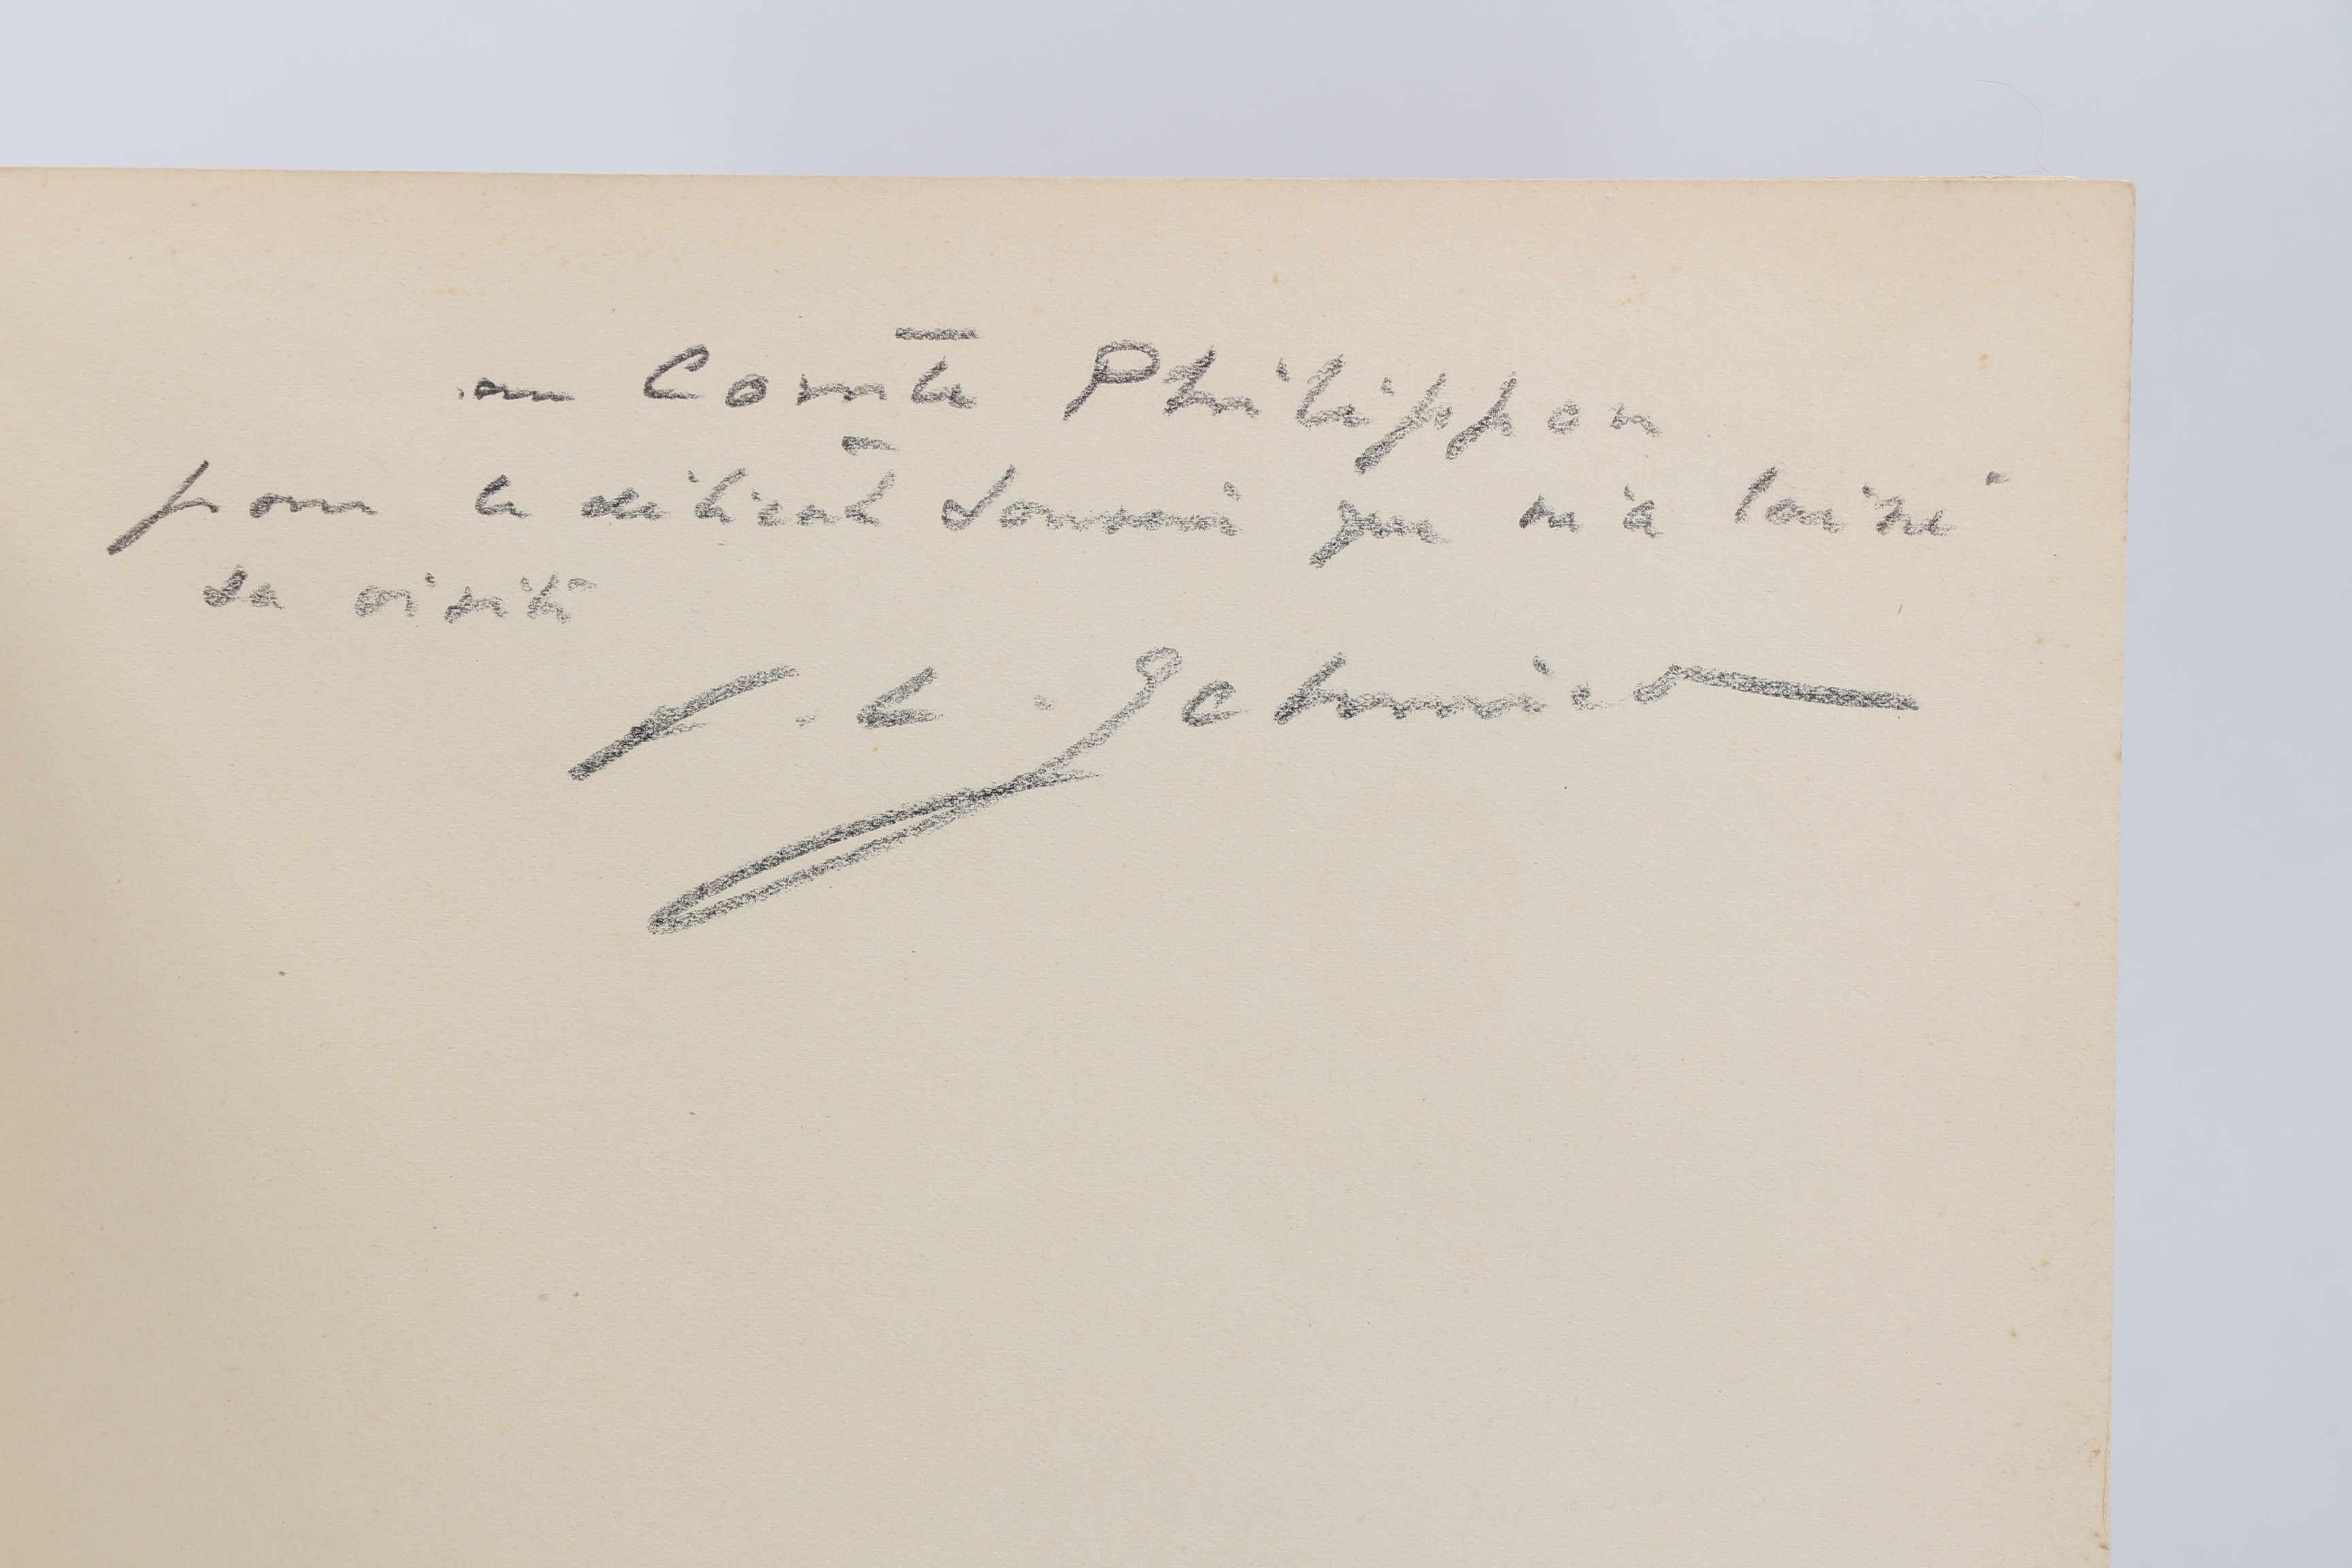 au Comte Philippon
pour le délicat souvenir que m'a laissé
sa visite
F. L. Schmied